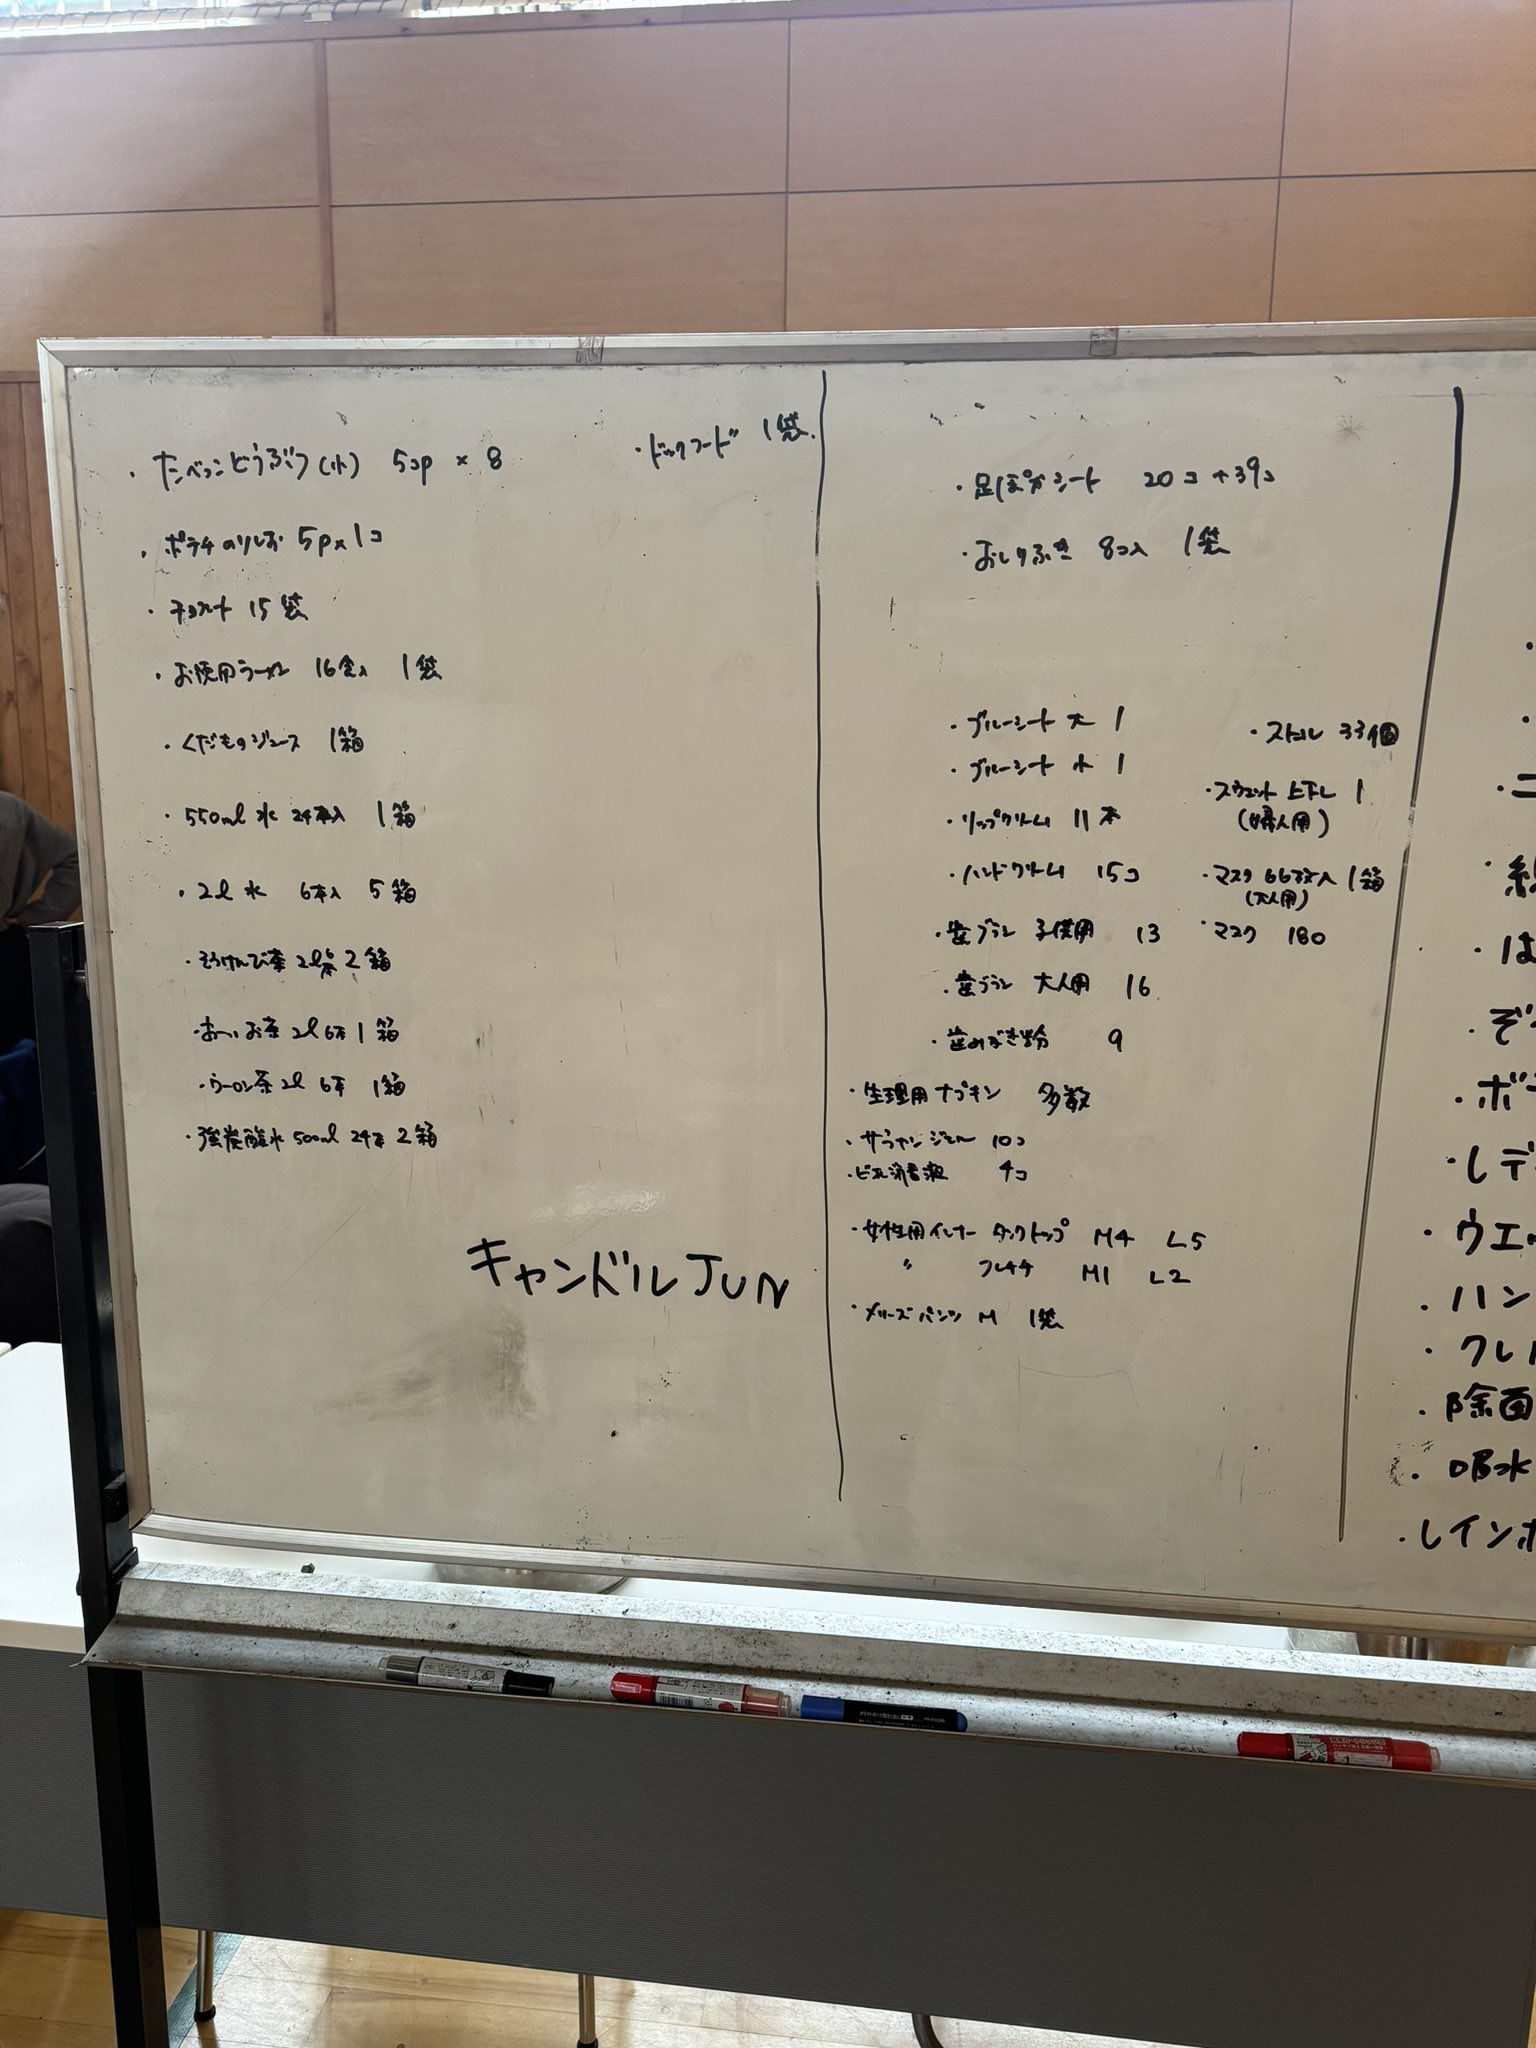 ・たべっこどうぶつ(小) 5コp × 8
・ドックフード 1袋.
・ポテチのりしお 5p×1コ
・チョコレート 15袋
・お徳用ラーメン 16食入 1袋
・くだものジュース 1箱
・550ml 水 24本入 1箱
・2l 水 6本入 5箱
・そうけんび茶 2l6本 2箱
・おーいお茶 2l 6本 1箱
・ウーロン茶 2l 6本 1箱
・強炭酸水 500ml 24本 2箱
キャンドルJUN
・足ぽかシート 20コ+39コ
・おしりふき 8コ入 1袋
・ブルーシート 大 1
・ブルーシート 小 1
・リップクリーム 11本
・ハンドクリーム 15コ
・歯ブラシ 子供用 13
・歯ブラシ 大人用 16
・歯みがき粉 9
・生理用ナプキン 多数
・サラヤンジェル 10コ
・ビオレ消毒液 4コ
・女性用インナー タンクトップ M4 L5
〃 フレンチ M1 L2
・メリーズパンツ M 1袋
・ストール 33個
・スウェット 上下L 1
(婦人用)
・マスク 66枚入 1箱
(大人用)
・マスク 180
・は
・ぞ
・ボ
・レデ
・ウエ
・ハン
・クレ
・除菌
・吸水
・レインボ